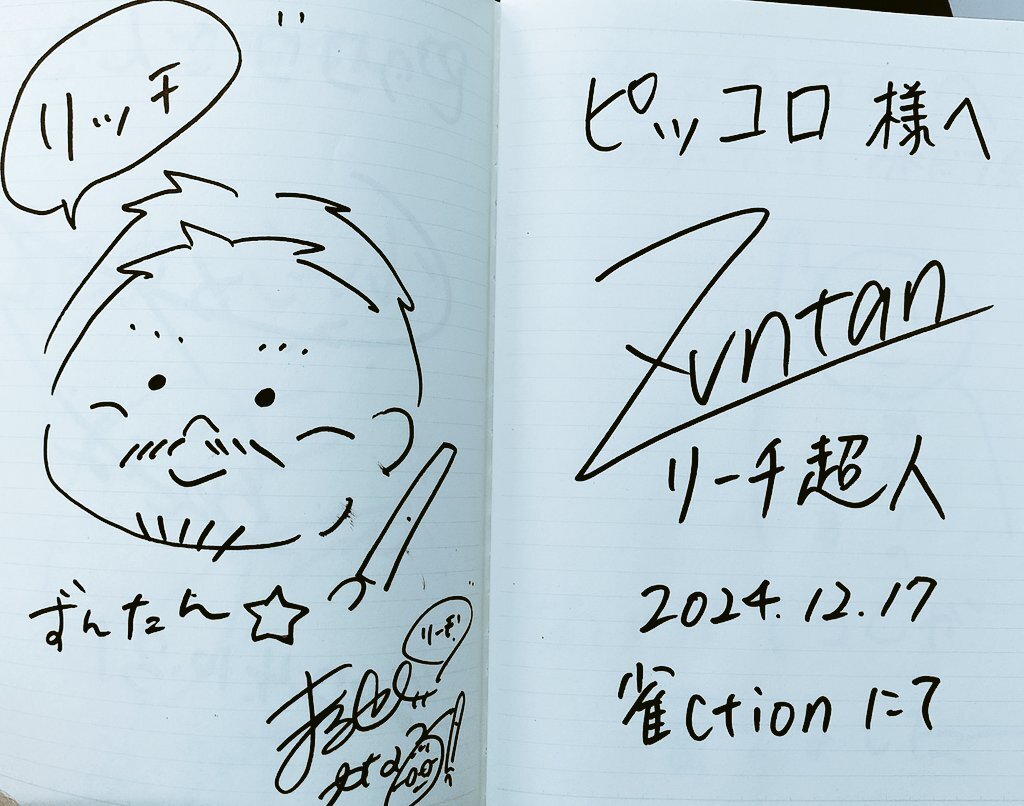 リッチ
ずんたん☆
リーチ!
ピッコロ 様へ
Zuntan
リーチ超人
2024.12.17
雀ction にて